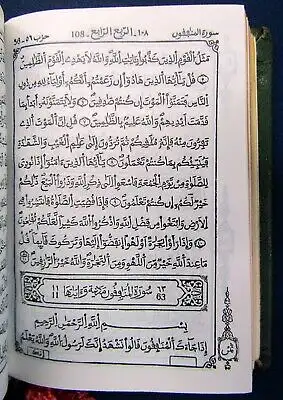 سورة المنافقون ١٠٨ - الربع الرابع - 108
مَثَلُ الْقَوْمِ الَّذِينَ كَذَّبُوا بِآيَاتِ اللَّهِ وَاللَّهُ لَا يَهْدِي الْقَوْمَ الظَّالِمِينَ
قُلْ يَا أَيُّهَا الَّذِينَ هَادُوا إِنْ زَعَمْتُمْ أَنَّكُمْ أَوْلِيَاءُ لِلَّهِ مِنْ
دُونِ النَّاسِ فَتَمَنَّوُا الْمَوْتَ إِنْ كُنْتُمْ صَادِقِينَ وَلَا يَتَمَنَّوْنَهُ
أَبَدًا بِمَا قَدَّمَتْ أَيْدِيهِمْ وَاللَّهُ عَلِيمٌ بِالظَّالِمِينَ قُلْ إِنَّ الْمَوْتَ الَّذِي
تَفِرُّونَ مِنْهُ فَإِنَّهُ مُلَاقِيكُمْ ثُمَّ تُرَدُّونَ إِلَى عَالِمِ الْغَيْبِ وَالشَّهَادَةِ
فَيُنَبِّئُكُمْ بِمَا كُنْتُمْ تَعْمَلُونَ يَا أَيُّهَا الَّذِينَ آمَنُوا إِذَا نُودِيَ
لِلصَّلَاةِ مِنْ يَوْمِ الْجُمُعَةِ فَاسْعَوْا إِلَى ذِكْرِ اللَّهِ وَذَرُوا الْبَيْعَ ذَلِكُمْ
خَيْرٌ لَكُمْ إِنْ كُنْتُمْ تَعْلَمُونَ فَإِذَا قُضِيَتِ الصَّلَاةُ فَانْتَشِرُوا فِي
الْأَرْضِ وَابْتَغُوا مِنْ فَضْلِ اللَّهِ وَاذْكُرُوا اللَّهَ كَثِيرًا لَعَلَّكُمْ تُفْلِحُونَ
وَإِذَا رَأَوْا تِجَارَةً أَوْ لَهْوًا انْفَضُّوا إِلَيْهَا وَتَرَكُوكَ قَائِمًا قُلْ
مَا عِنْدَ اللَّهِ خَيْرٌ مِنَ اللَّهْوِ وَمِنَ التِّجَارَةِ وَاللَّهُ خَيْرُ الرَّازِقِينَ
٦٣ 63 سُورَةُ الْمُنَافِقُونَ ١١
بِسْمِ اللَّهِ الرَّحْمَنِ الرَّحِيمِ
إِذَا جَاءَكَ الْمُنَافِقُونَ قَالُوا نَشْهَدُ إِنَّكَ لَرَسُولُ اللَّهِ وَاللَّهُ يَعْلَمُ